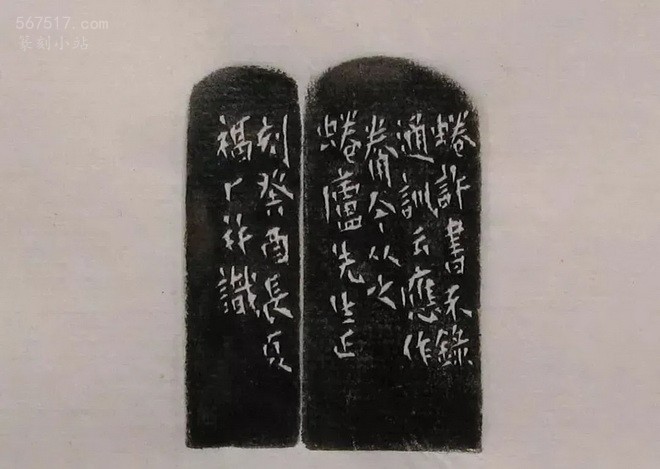 蜷許書未錄
通訓云應作
觠今从之
蜷廬先生正
刻癸酉長夏
福厂并識
567517.com
篆刻小站